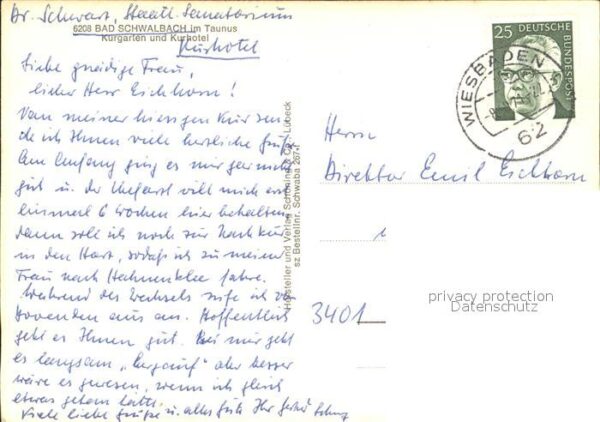 Dr. Schwarz, Staatl. Sanatorium
6208 BAD SCHWALBACH im Taunus
Kurgarten und Kurhotel
Kurhotel
Liebe gnädige Frau,
lieber Herr Eichhorn!
Von meiner hiesigen Kur sen-
de ich Ihnen viele herzliche Grüße
Am Anfang ging es mir gar nicht
gut u. der Chefarzt will mich erst
einmal 6 Wochen hier behalten,
dann soll ich noch zur Nachkur
in den Harz, sodaß ich zu meiner
Frau nach Hahnenklee fahre.
Während des Wechsels rufe ich von
aus an. Hoffentlich
geht es Ihnen gut. Bei mir geht
es langsam „bergauf" aber besser
wäre es gewesen, wenn ich gleich
etwas getan hätte.
Viele liebe Grüße u. alles Gute Ihr
Hersteller und Verlag Schöning & Co., Lübeck
sz Bestellnr. Schwaba 267-f
25 DEUTSCHE BUNDESPOST
WIESBADEN
62
Herrn
Direktor Emil Eichhorn
3401
privacy protection
Datenschutz